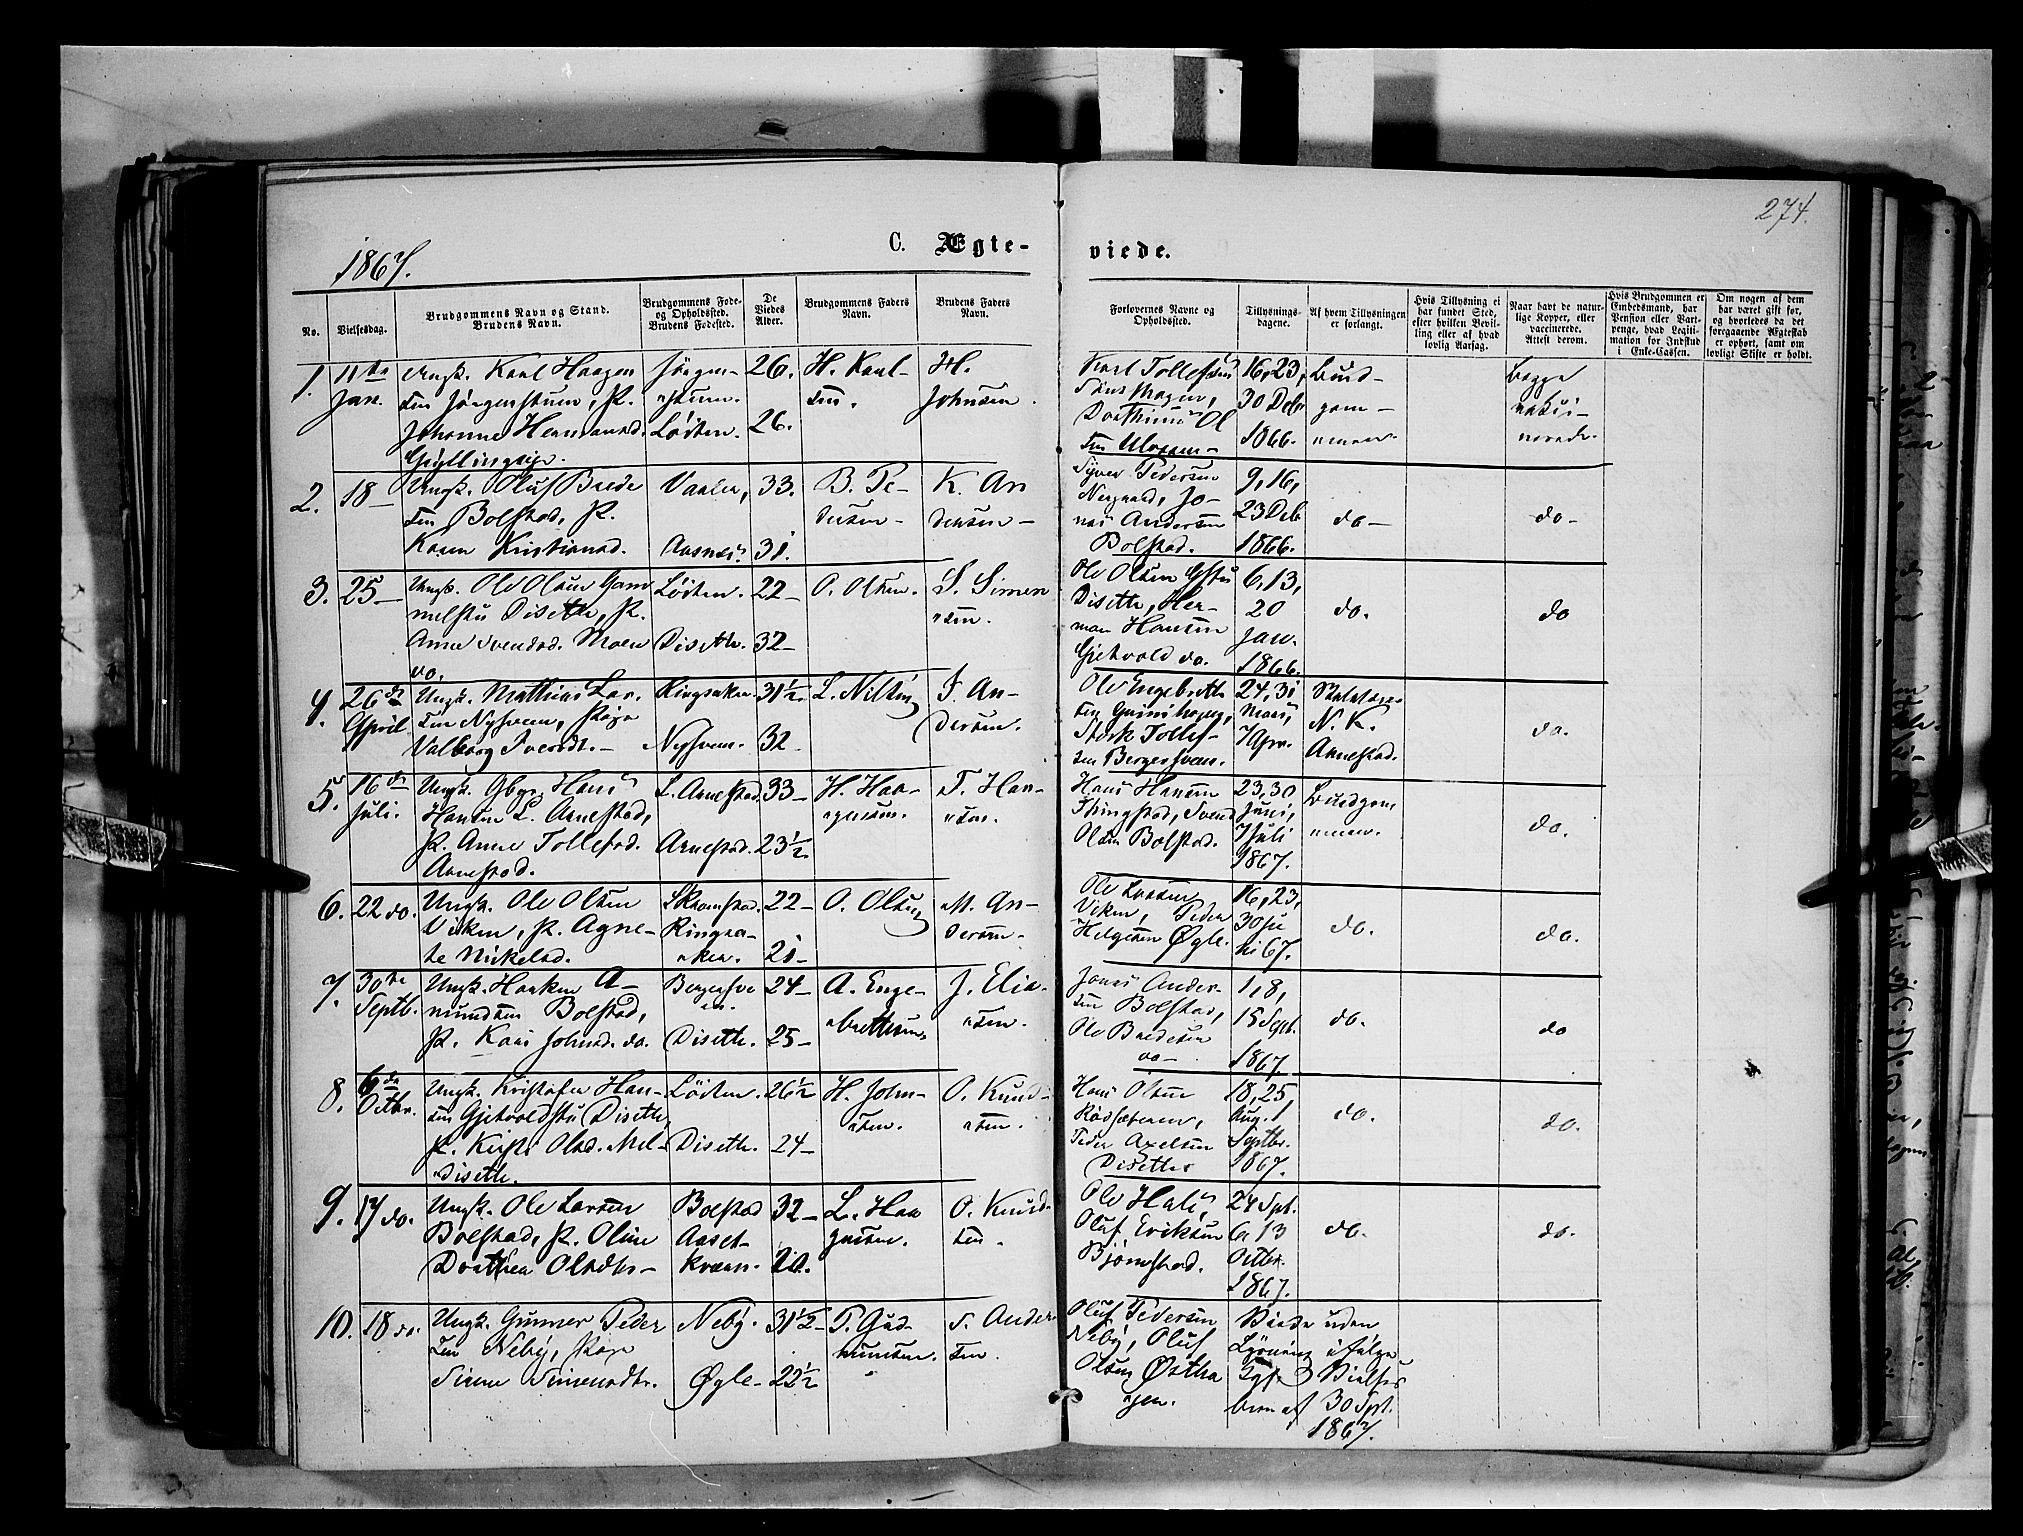 274.
1867.
C. Ægte-
viede.
No.
Vielsesdag.
Brudgommens Navn og Stand.
Brudens Navn.
Brudgommens Føde-
og Opholdssted.
Brudens Fødested.
De
Viedes
Alder.
Brudgommens Faders
Navn.
Brudens Faders
Navn.
Forlovernes Navne og
Opholdssted.
Tillysnings-
dagene.
Af hvem Tillysningen
er forlangt.
Hvis Tillysning ei
har fundet Sted,
efter hvilken Bevil-
ling eller af hvad
lovlig Aarsag.
Naar havt de natur-
lige Kopper, eller
vaccinerede.
Attest derom.
Hvis Brudgommen er
Embedsmand, har
Pension eller Vart-
penge, hvad Legiti-
mation for Indskud
i Enke-Cassen.
Om nogen af dem
har været gift før,
og hvorledes da det
foregaaende Ægteskab
er ophørt, samt om
lovligt Skifte er holdt.
1. 11te Jan.
Ungk. Karl Haagen
sen Jørgenstuen, P.
Johanne Hermansd.
Jørgen-
stuen.
Løiten.
26.
26.
H. Karl-
sen.
H.
Johnsen.
Karl Tollefsen
16, 23,
30 Debr
1866.
Brud-
gom-
men.
Begge
vakci-
nerede.
2. 18
Ungk. Oluf Brede
sen Bolstad, P.
Karen Kristiansd.
Vaaler,
Aasnes.
33.
31.
B. Pe-
dersen
K. An
dersen
Syver Pedersen
Nergaard, Jo-
nas Andersen
Bolstad.
9, 16,
23 Deb
1866.
do
do
3. 25
Ungk. Ole Olsen Gam
melstu Diseth, P.
Anne Svendsd. Moen
do.
Løiten.
Diseth.
22
32
O. Olsen.
S. Simen
sen.
Ole Olsen
Diseth, Her-
man Hansen
Gjetvold do.
6, 13,
20
Jan.
1866.
do.
do
4. 26de April
Ungk. Mathias Lar
sen Nysveen, Pige
Valborg Svendt.
Ringsaker
Nysveen.
31½
32
L. Nilsen
S. An-
dersen.
Ole Engebreth
sen
Tollef-
sen Bergersveen.
24, 31
Mars,
7 Apr.
N. K.
Arnestad.
do.
5. 16de Juli.
Ungk. Gbr. Hans
Hansen L. Arnestad,
P. Anne Tollefsd.
Arnestad.
L. Arnestad
Arnestad
33
23½
H. Haa-
gensen.
T. Han-
sen.
Hans Hansen
Thingstad, Svend
Olsen Bolstad.
23, 30
Juni,
7 Juli
1867.
Brudgom
men.
do.
6. 22 do.
Ungk. Ole Olsen
Viken, P. Agne-
te Mikelsd.
Skramstad.
Ringsa-
ker.
22
21
O. Olsen
M. An-
dersen
Ole Larsen
Viken, Peder
Helgesen Øgle.
16, 23,
30 Ju
ni 67.
do.
do.
7. 30te Septb.
Ungk. Haaken A-
mundsen Bolstad,
P. Kari Johnsd. do.
Bergersve
en.
Diseth.
24
25
A. Enge-
brethsen
J. Elia-
sen.
Jonas Ander-
sen Bolstad,
Ole Bredesen
do
1, 8,
15 Sept.
1867.
do.
do
8. 6de Octbr.
Ungk. Kristofer Han-
sen Gjetvoldstu Diseth,
P. Kirsti Olsd. Mel-
diseth.
Løiten
Diseth.
26½
24
H. John-
sen.
O. Knud-
sen.
Hans Olsen
Rødsæteren,
Peder Axelsen
Disether
18, 25,
Aug. 1
Septbr.
1867.
do.
do.
9. 17 do.
Ungk. Ole Larsen
Bolstad, P. Oline
Dorthea Olsdtr
Bolstad
Aaset-
kværn.
32
20.
L. Haa
gensen.
O. Knud-
sen
Ole Hals,
Oluf Eriksen
Bjørnstad.
24 Spt.
6, 13
Octbr.
1867.
do.
do.
10. 18 do.
Ungk. Gunner Peder
sen Neby, Pige
Sirene Simensdtr.
Neby.
Øgle
31½
22½
P. Gud-
mundsen.
S. Ander
sen.
Oluf Pedersen
Neby, Oluf
Olsen Østha
gen.
Viede uden
Lysning ifølge
30 Spt.
1867.